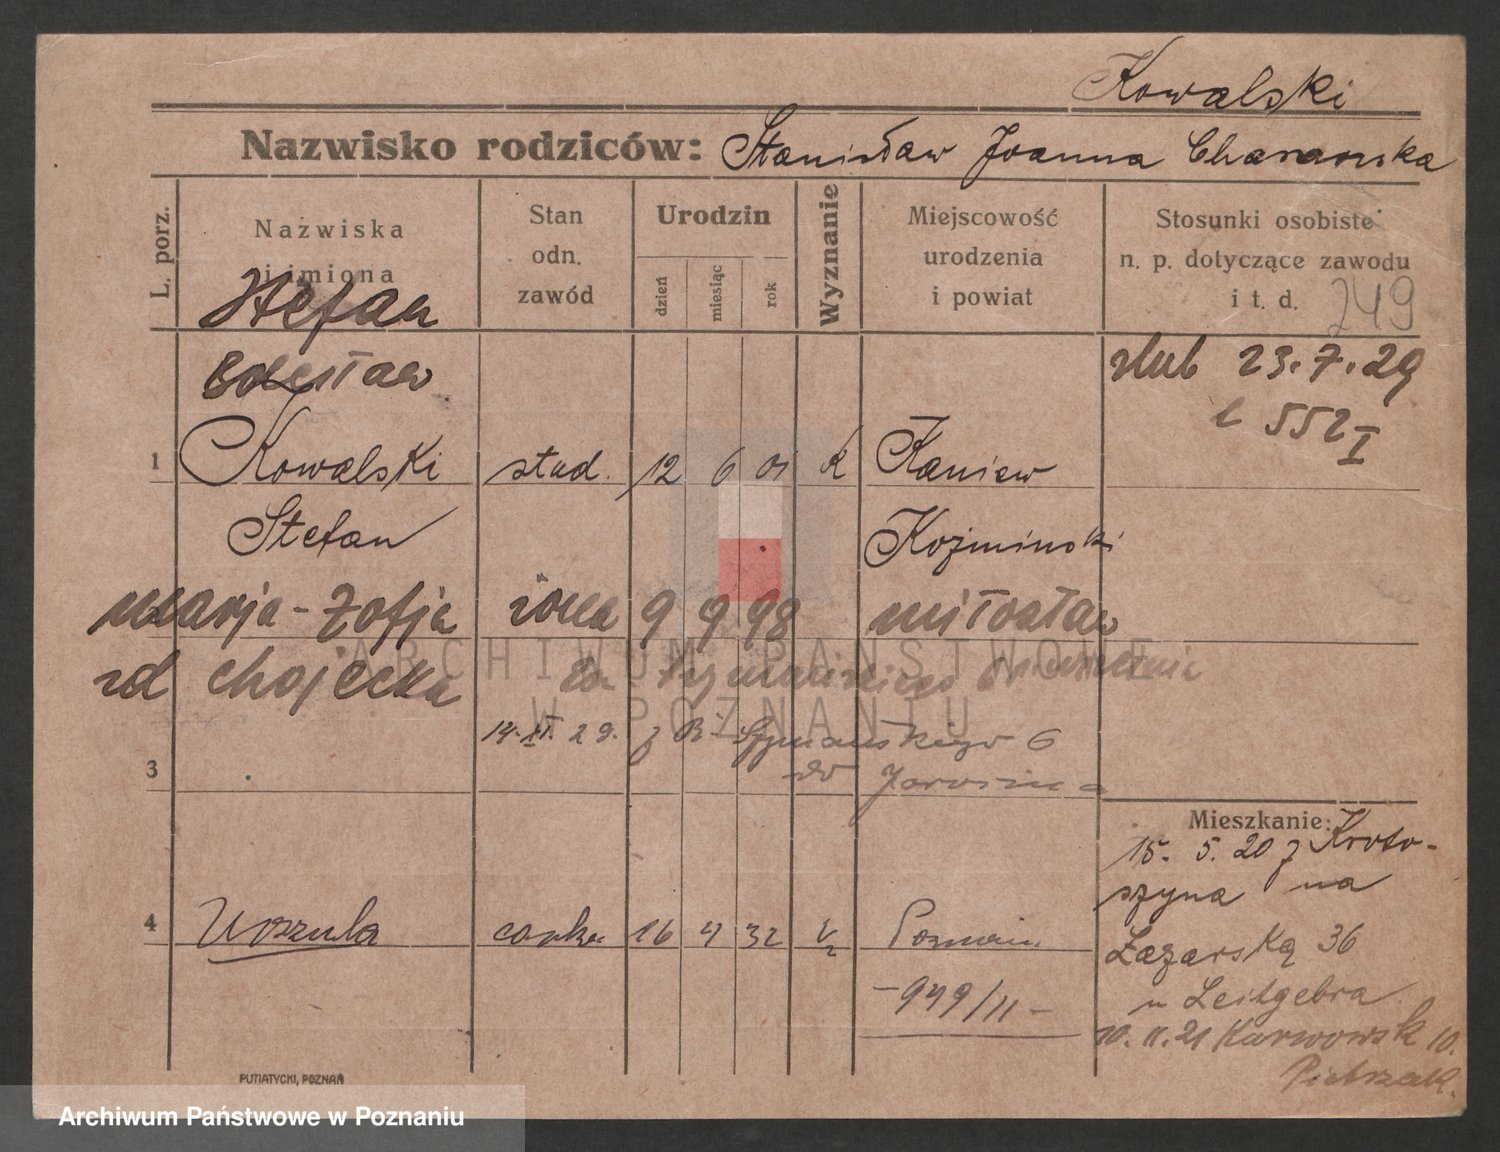 Kowalski
Nazwisko rodziców: Stanisław Joanna
L. porz.
Nazwiska i imiona
Stan odn. zawód
Urodzin
dzień
miesiąc
rok
Wyznanie
Miejscowość urodzenia i powiat
Stosunki osobiste n. p. dotyczące zawodu i t. d.
249
Stefan
Bolesław
ślub 23.7.29
l 552 I
1 Kowalski stud. 12 6 01 k Kaniew
Stefan Koźminski
Marja-Zofja żona 9 9 98 Miłosław
zd Chojecka
ARCHIWUM PAŃSTWOWE
W POZNANIU
14. XI. 29. z Szymańskiego 6
do Jarocina
3
Mieszkanie:
15. 5. 20 z Kroto-
szyna na
Łazarską 36
u Leitgebra
10. 11. 21 Karwowsk 10.
Pietrzak.
4 Urszula córka 16 4 32 Poznań
-949/11-
PUTIATYCKI, POZNAŃ
Archiwum Państwowe w Poznaniu